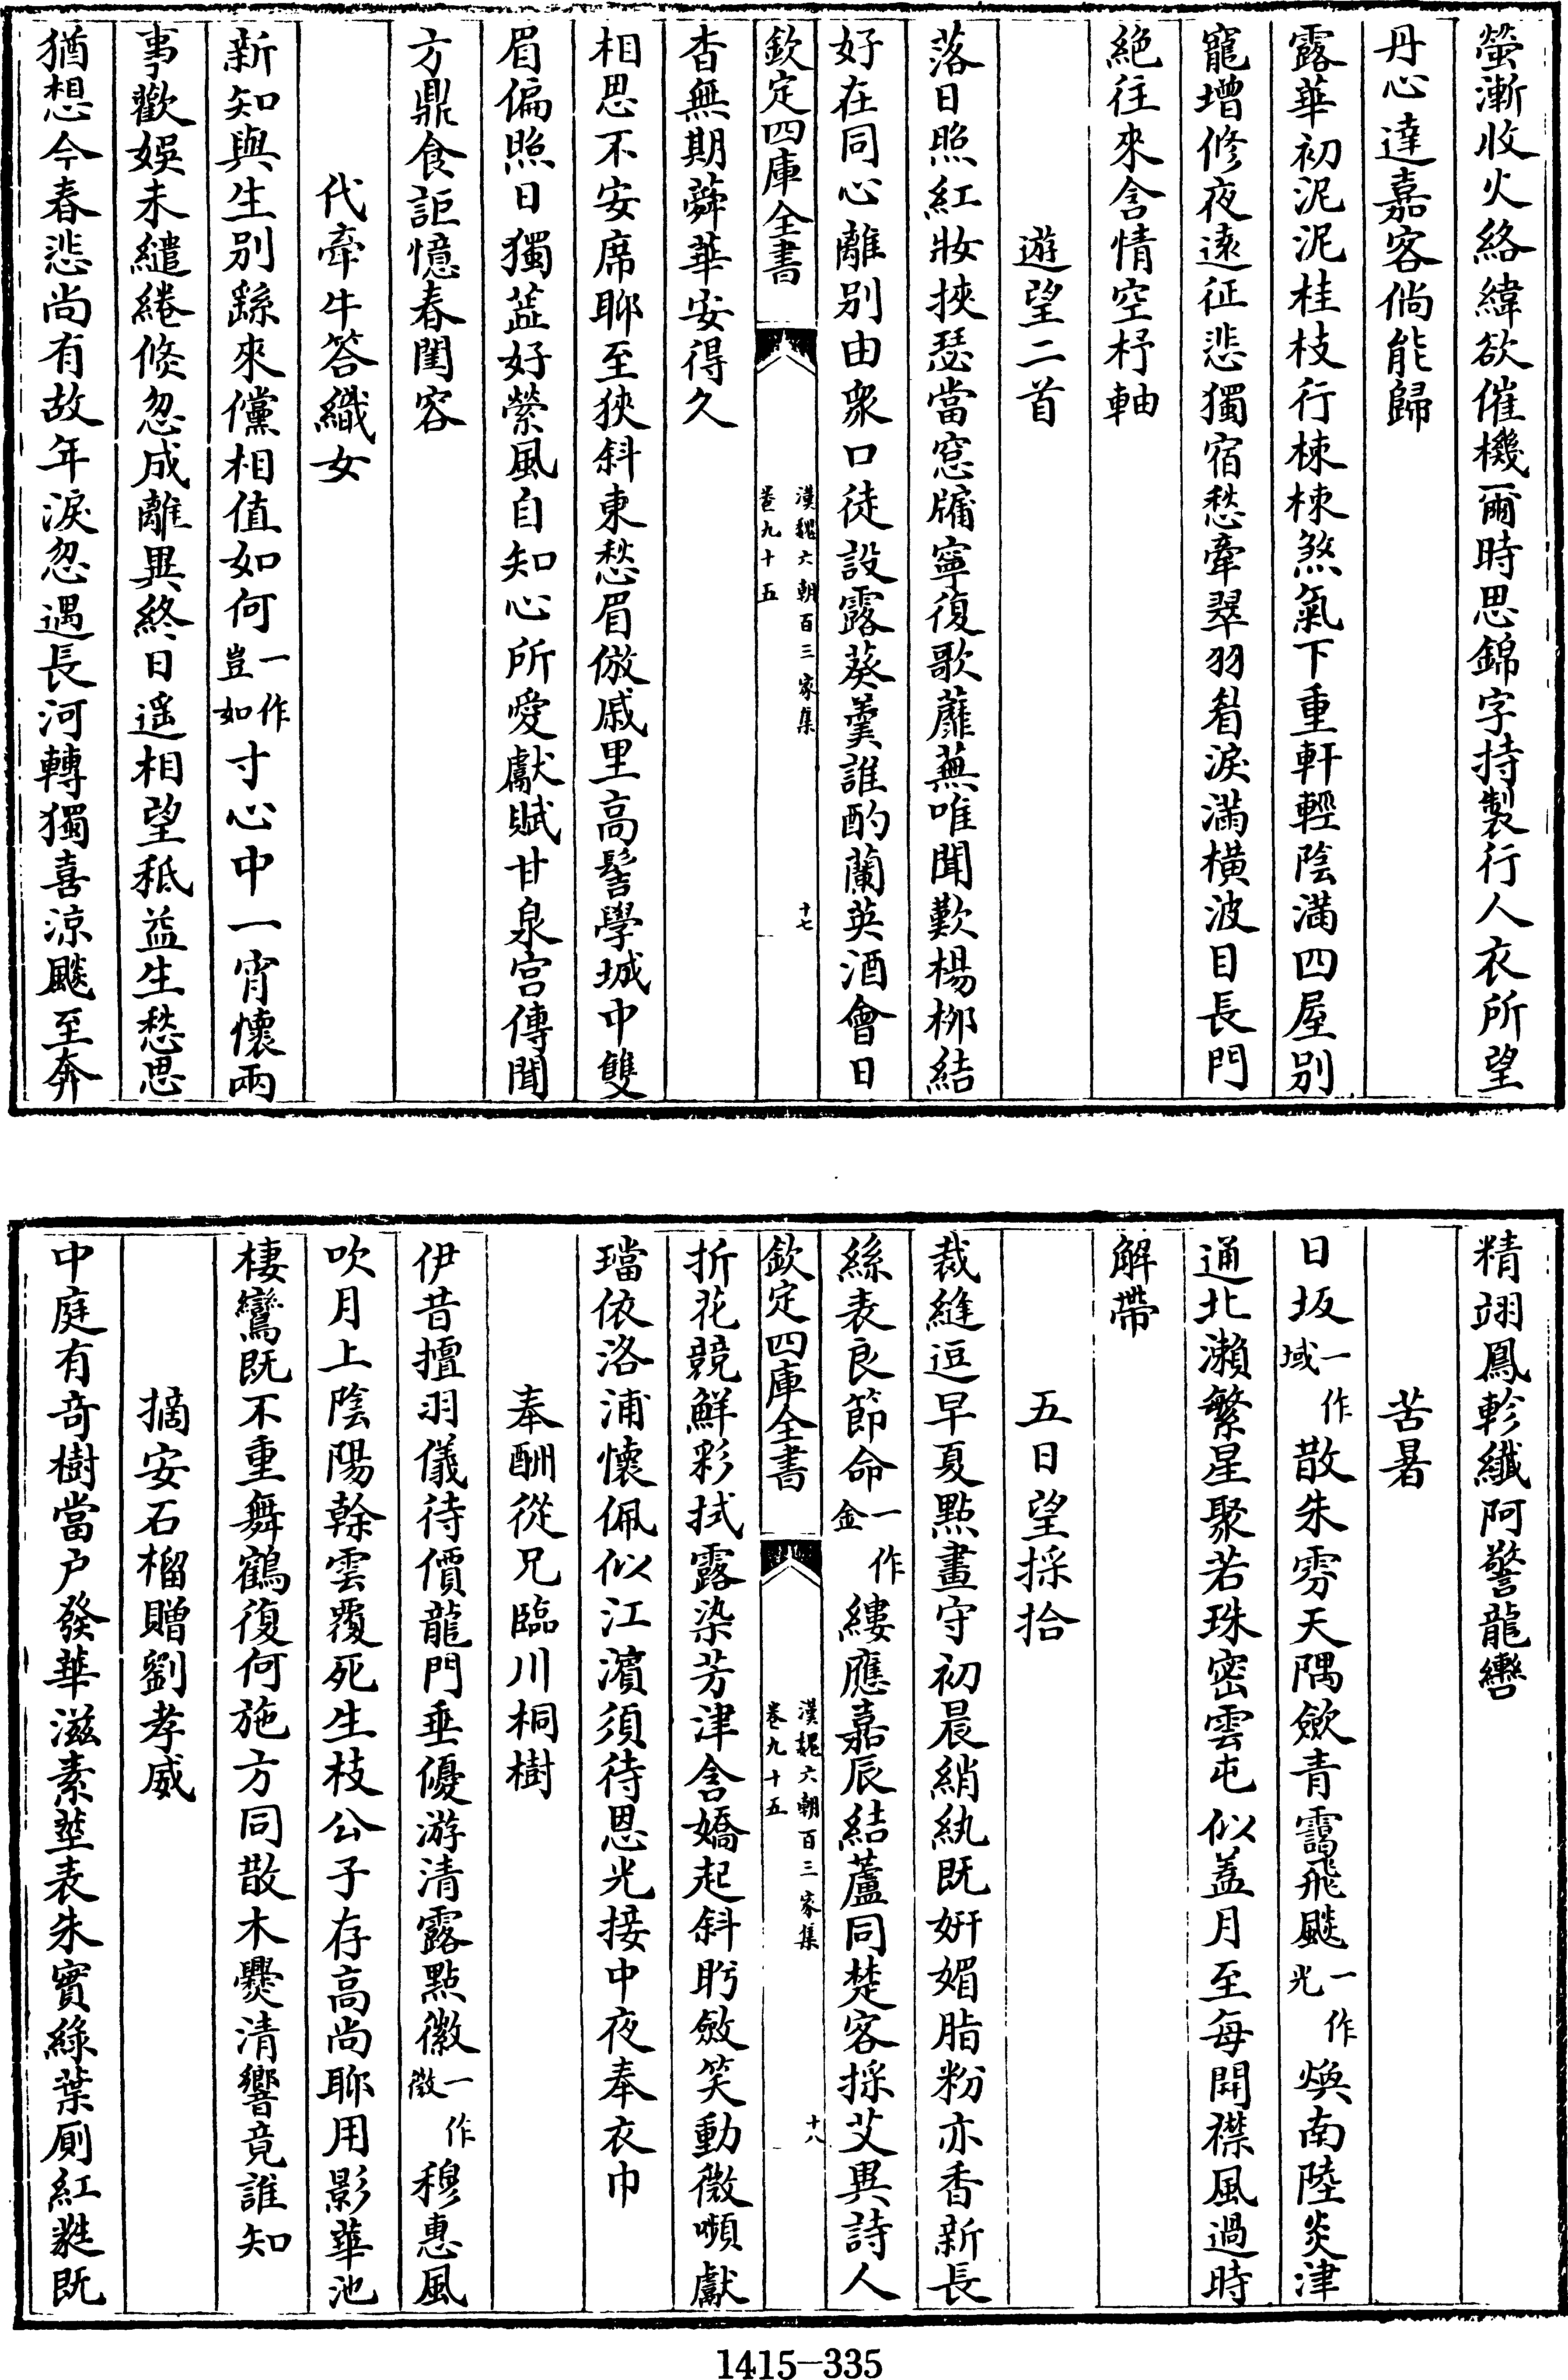 螢漸收火絡緯欲催機爾時思錦字持製行人衣所望
丹心達嘉客倘能歸
露華初泥泥桂枝行棟棟煞氣下重軒輕陰滿四屋别
寵增修夜遠征悲獨宿愁牽翠羽眉淚滿横波目長門
絶往來含情空杼軸
遊望二首
落日照紅妝挾瑟當窓牖寧復歌蘼蕪唯聞歎楊栁結
好在同心離别由衆口徒設露葵羹誰酌蘭英酒會日
欽定四庫全書
漢魏六朝百三家集
卷九十五
十七
杳無期蕣華安得久
相思不安席聊至狹斜東愁眉倣戚里高髻學城中雙
眉偏照日獨蕋好縈風自知心所愛獻賦甘泉宫傳聞
方鼎食詎憶春閨容
代牽牛答織女
新知與生别繇來儻相值如何一作豈如寸心中一宵懷兩
事歡娛未繾綣倐忽成離異終日遥相望秪益生愁思
猶想今春悲尚有故年淚忽遇長河轉獨喜涼飈至奔
精翊鳳軫纎阿警龍轡
苦暑
日坂一作域散朱雰天隅歛青靄飛飈一作光焕南陸炎津
通北瀨繁星聚若珠密雲屯似盖月至每開襟風過時
解帶
五日望採拾
裁縫逗早夏點畫守初晨綃紈既妍媚脂粉亦香新長
絲表良節命一作金縷應嘉辰結蘆同楚客採艾異詩人
欽定四庫全書
漢魏六朝百三家集
卷九十五
十八
折花競鮮彩拭露染芳津含嬌起斜盻斂笑動微嚬獻
璫依洛浦懷佩似江濱須待恩光接中夜奉衣巾
奉酬從兄臨川桐樹
伊昔擅羽儀待價龍門垂優游清露點徽一作微穆惠風
吹月上陰陽榦雲覆死生枝公子存高尚聊用影華池
棲鸞既不重舞鶴復何施方同散木爨清響竟誰知
摘安石榴贈劉孝威
中庭有奇樹當户發華滋素莖表朱實緑葉厠紅蕤既
1415-335